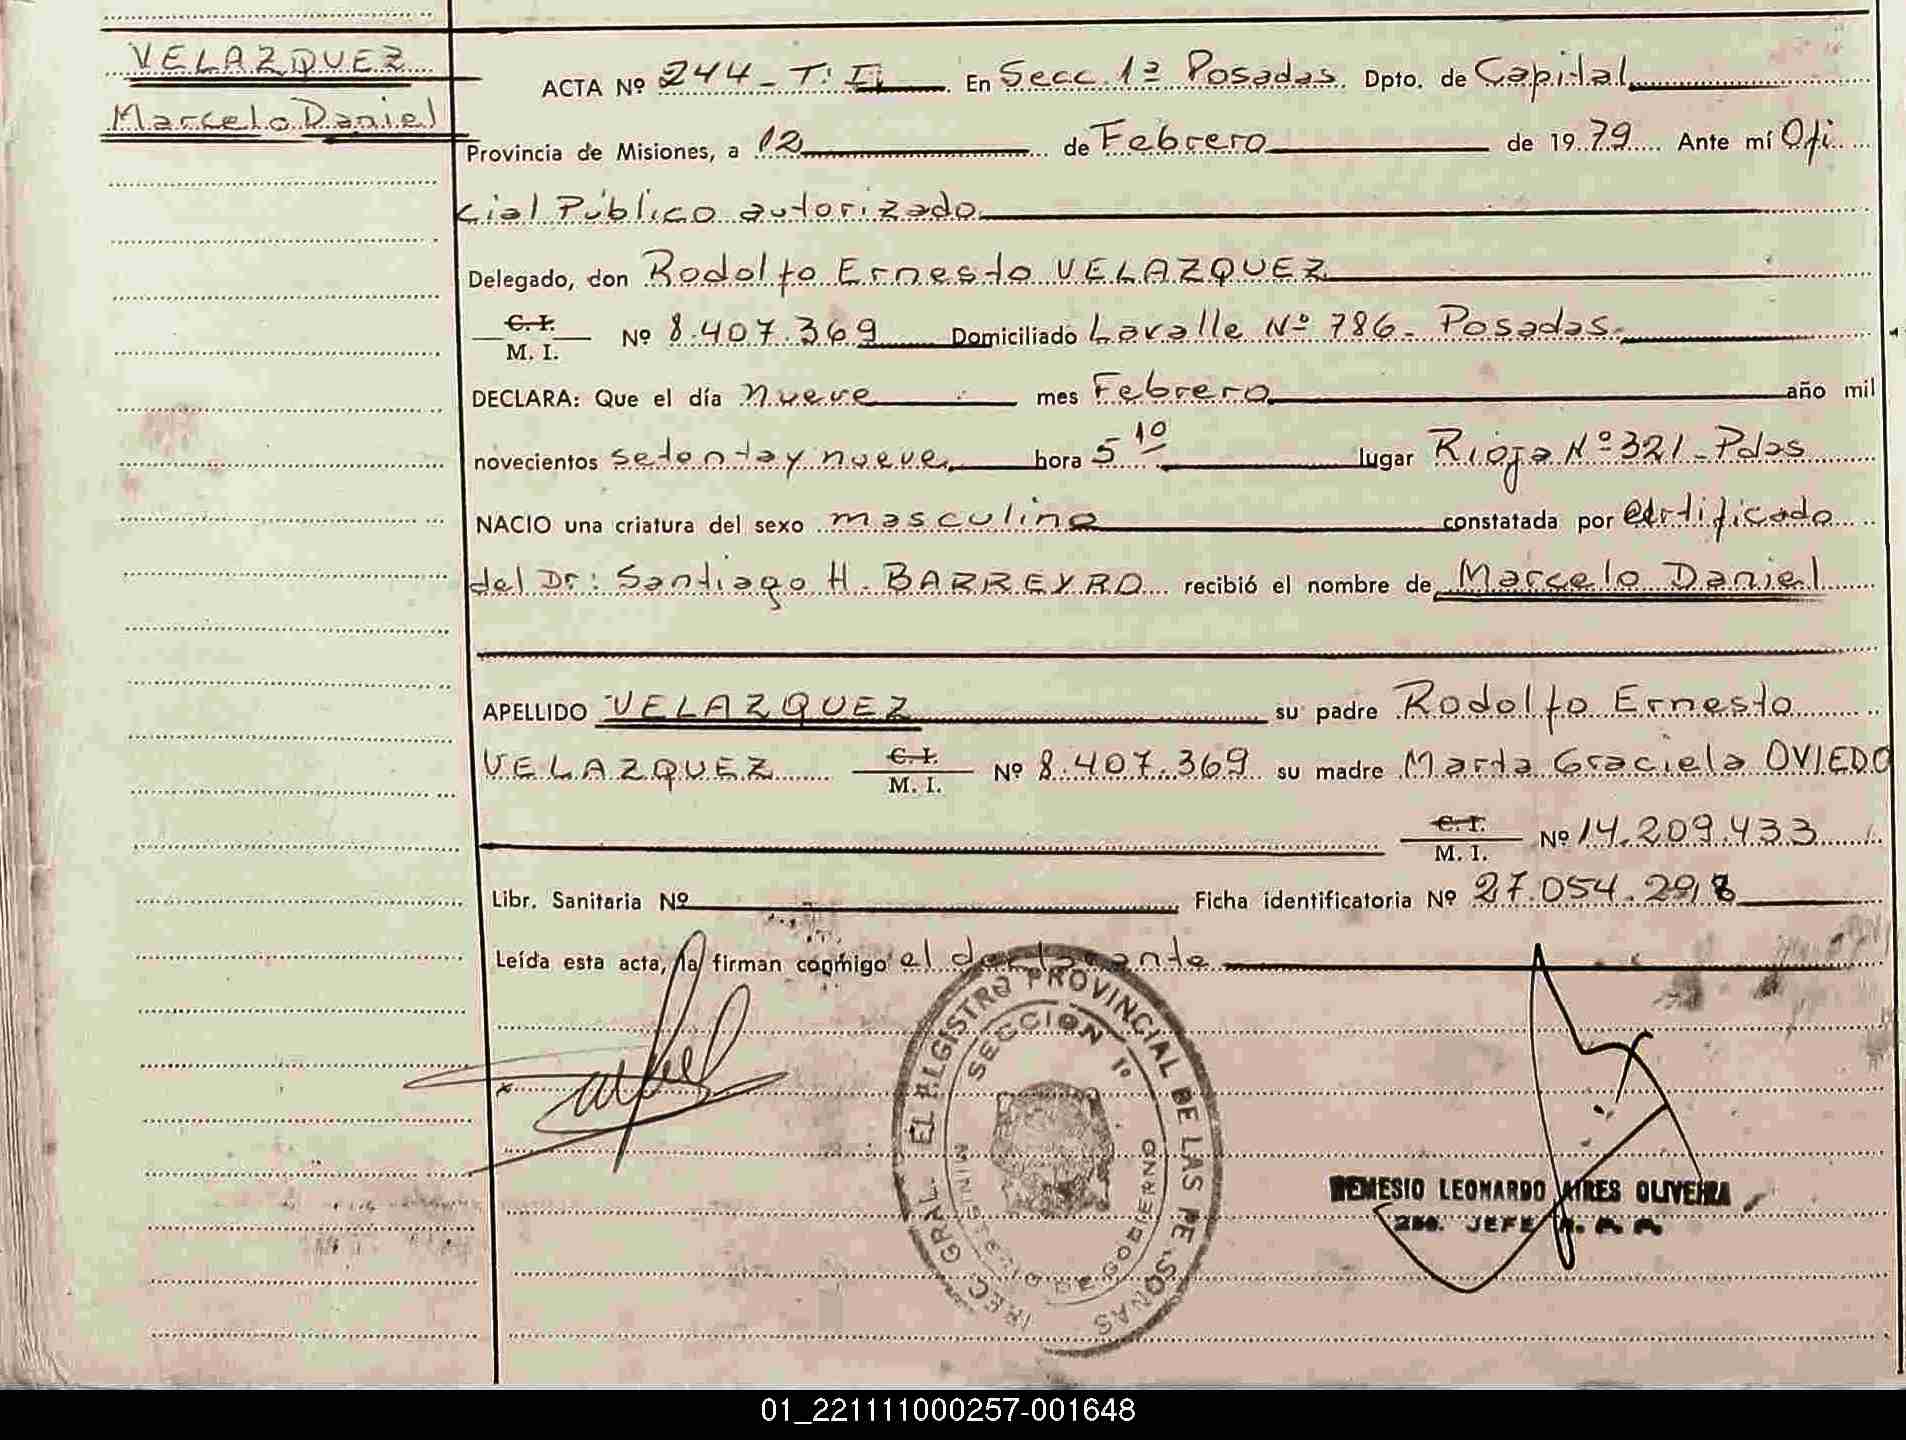 VELAZQUEZ
Marcelo Daniel
ACTA Nº 244 - T: II En Secc. 1ª Posadas Dpto. de Capital
Provincia de Misiones, a 12 de Febrero de 1979 Ante mí Ofi
cial Público autorizado
Delegado, don Rodolfo Ernesto VELAZQUEZ
C. I.
M. I. Nº 8.407.369 Domiciliado Lavalle Nº 786 - Posadas.
DECLARA: Que el día nueve mes Febrero año mil
novecientos setenta y nueve hora 5 10 lugar Rioja Nº 321 - Pdas
NACIO una criatura del sexo masculino constatada por certificado
del Dr: Santiago H. BARREYRO recibió el nombre de Marcelo Daniel
APELLIDO VELAZQUEZ su padre Rodolfo Ernesto
VELAZQUEZ C. I. M. I. Nº 8.407.369 su madre Marta Graciela OVIEDO
C. I.
M. I. Nº 14.209.433
Libr. Sanitaria Nº Ficha identificatoria Nº 27.054.298
Leída esta acta, la firman conmigo el declarante
REGISTRO PROVINCIAL DE LAS PERSONAS
SECCION 1º
MINISTERIO DE GOBIERNO
NEMESIO LEONARDO AIRES OLIVEIRA
2do. JEFE
01_221111000257-001648